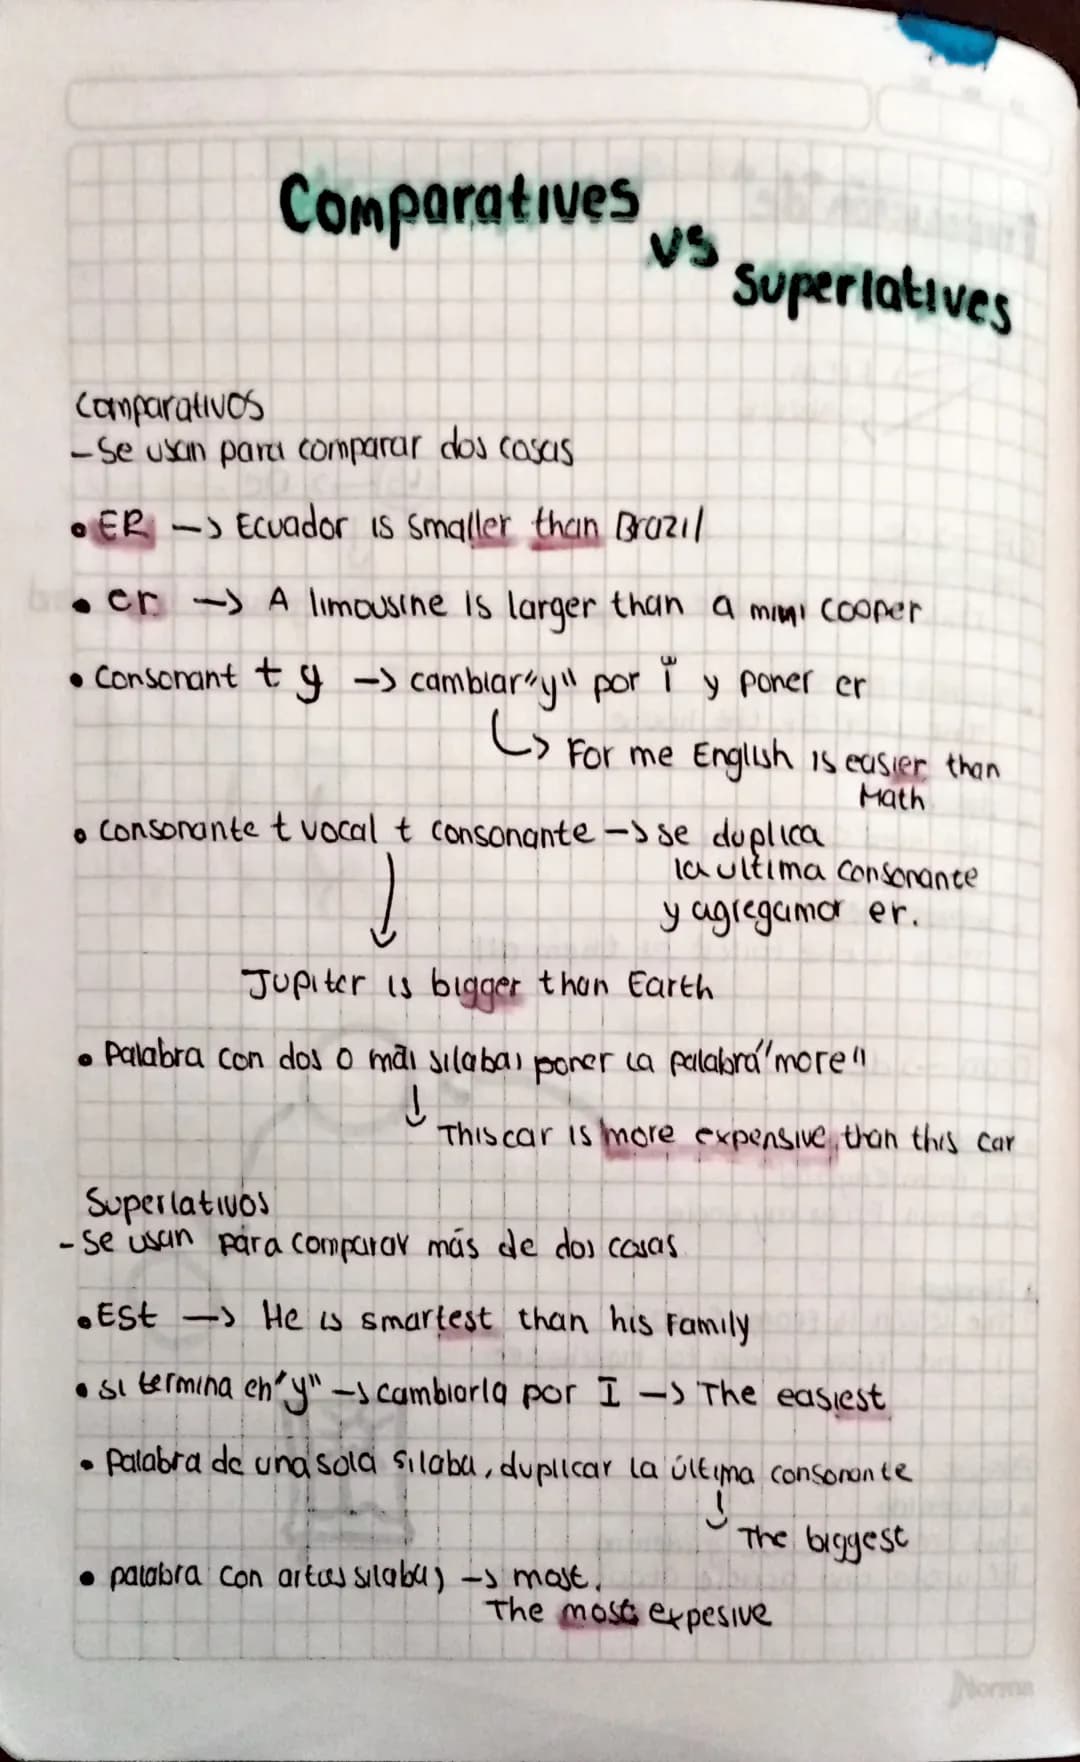 Comparatives
vs
Superlatives
Comparativos
- Se usan para comparar dos cosas
• ER -> Ecuador is smaller than Brazil
• er -> A limousine is larger than a mini cooper
• Consonant + y -> cambiar "y" por i y poner er
↳ For me English is easier than
Math
• Consonante + vocal + consonante -> se duplica
la ultima consonante
y agregamos er.
Jupiter is bigger than Earth
• Palabra con dos o más silabas poner la palabra "more"
This car is more expensive than this car
Superlativos
- Se usan para comparar más de dos cosas
• Est -> He is smartest than his Family
• si termina en "y" -> cambiarla por I -> The easiest
• Palabra de una sola silaba, duplicar la última consonante
The biggest
• palabra con artas silabas -> most.
The most expesive
Norma